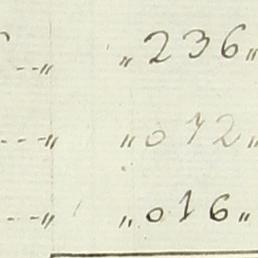 --〃 „236„
---〃 „072„
--〃 „016„